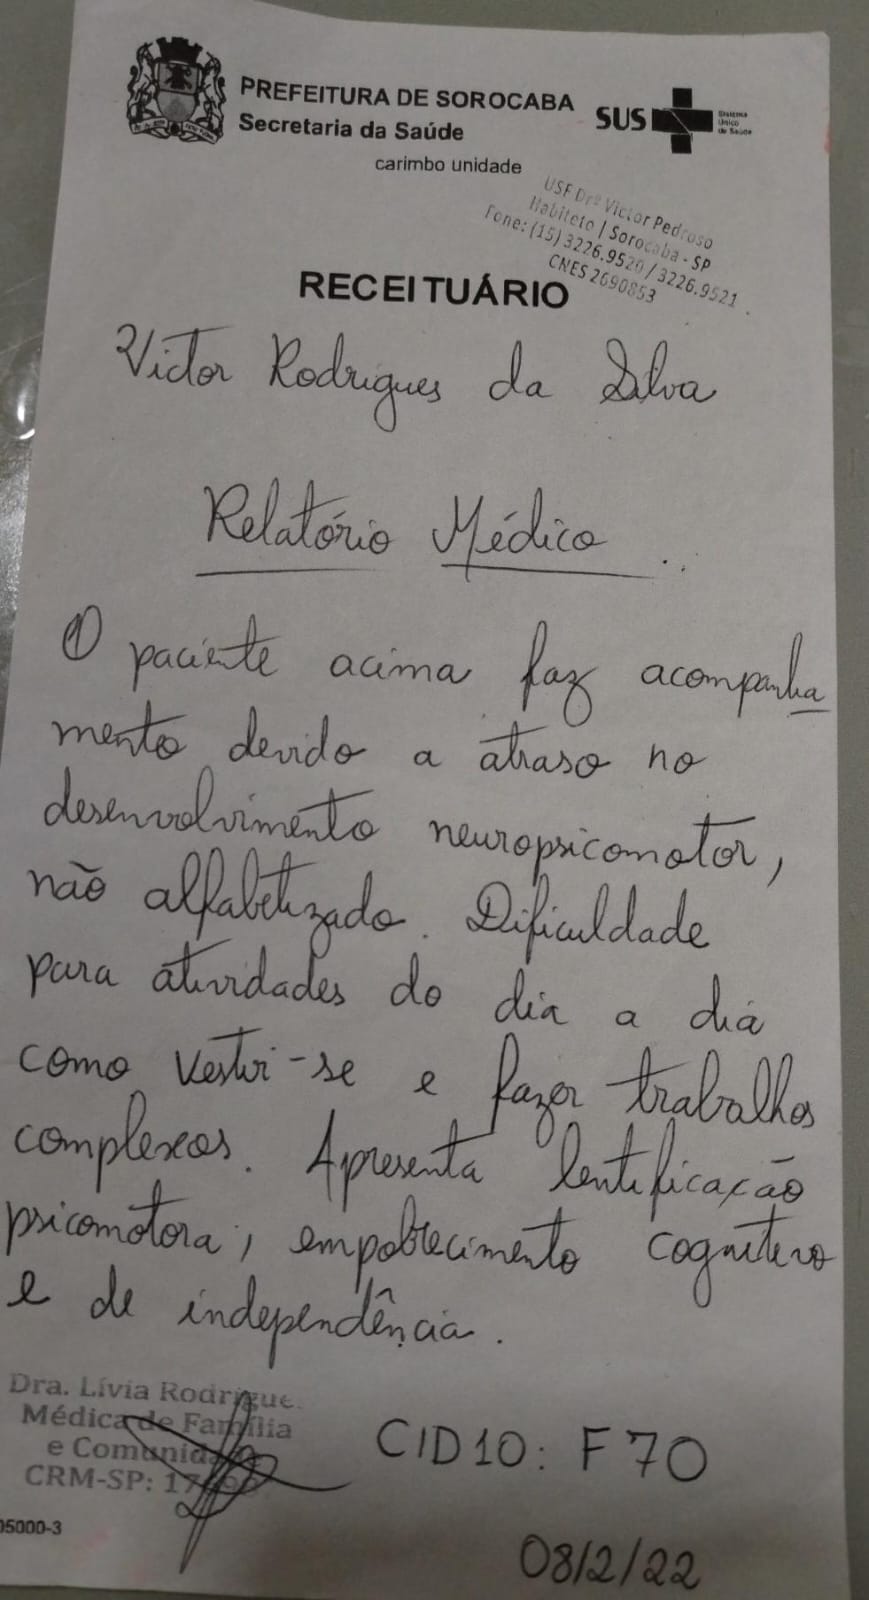 PREFEITURA DE SOROCABA
Secretaria da Saúde
SUS
Sistema
Único
de Saúde
carimbo unidade
USF Drº Victor Pedroso
Habiteto | Sorocaba - SP
Fone: (15) 3226.9520 / 3226.9521
CNES 2690853
RECEITUÁRIO
Victor Rodrigues da Silva
Relatório Médico
O paciente acima faz acompanha
mento devido a atraso no
desenvolvimento neuropsicomotor,
não alfabetizado. Dificuldade
para atividades do dia a dia
como vestir-se e fazer trabalhos
complexos. Apresenta lentificação
psicomotora, empobrecimento cognitivo
e de independência.
Dra. Lívia Rodrigue
Médica de Família
e Comunid
CRM-SP: 17
CID10: F70
05000-3
08/2/22